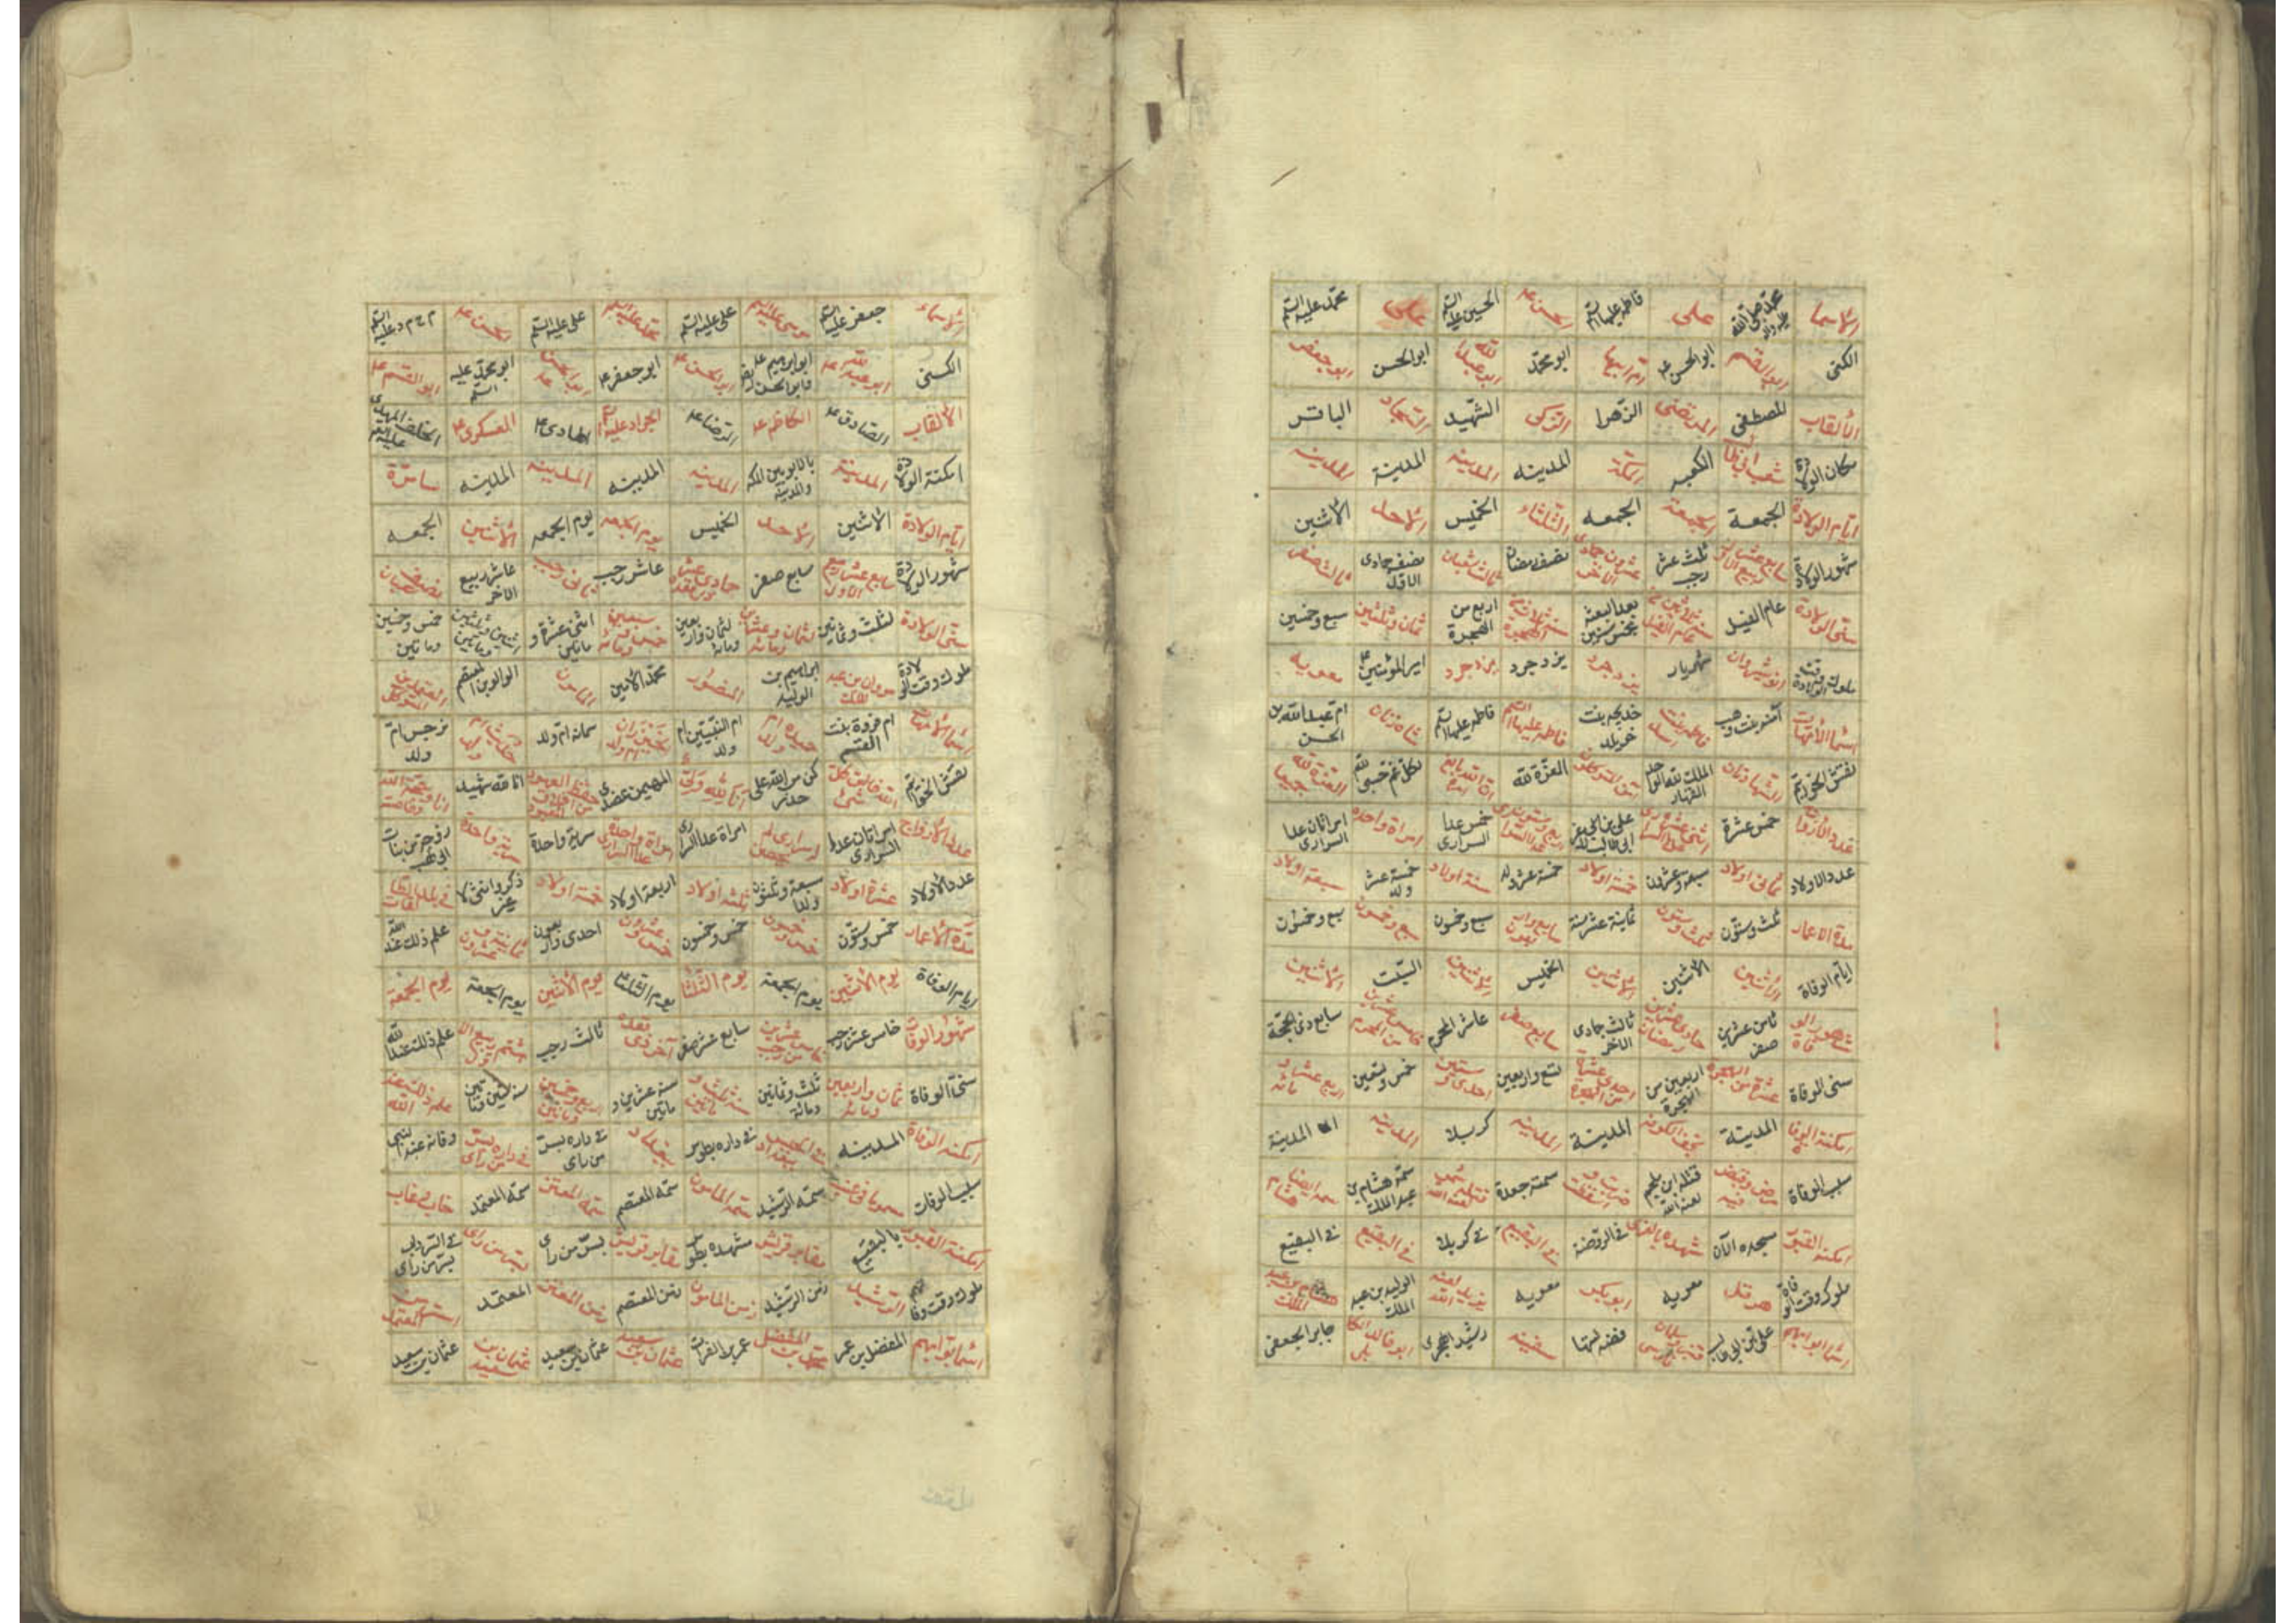 الاسما محمد صلى الله عليه واله على فاطمه عليها السلم الحسن ع الحسين عليه السلم على محمد عليه السلم
الكنى ابو القسم ابو الحسن ع ام ابيها ابو محمد ابو عبد الله ابو الحسن ابو جعفر
الألقاب المصطفى المرتضى الزهرا الزكى الشهيد السجاد الباقر
مكان الولادة شعب ابى طالب الكعبه مكة المدينه المدينه المدينة المدينه
ايام الولادة الجمعة الجمعة الجمعه الثلثاء الخميس الاحد الاثنين
شهور الولادة سابع عشر ربيع الاول ثلث عشر رجب عشرون جمادى الاخر نصف رمضان ثالث شعبان نصف جمادى الاول ثالث صفر
سنى الولادة عام الفيل بعد البعثة بخمس سنين اربع من الهجرة ثمان وثلثين سبع وخمسين
ملوك وقت الولادة انوشيروان شهريار يزدجرد يزدجرد يزدجرد امير المؤمنين ع معويه
اسما الأمهات آمنه بنت وهب فاطمه بنت اسد خديجه بنت خويلد فاطمه عليها السلم فاطمه عليها السلم شاه زنان ام عبد الله بن الحسن
نقش الخواتيم الشهادتان الملك لله الواحد القهار العزة لله ان الله بالغ امره لكل غم حسبى الله العزة لله جميعا
عدد الأزواج خمس عشرة خمس عدا السرارى امراة واحدة امراتان عدا السرارى
عدد الاولاد ثمانى اولاد سبعة وعشرون خمسة اولاد خمسة عشر ولد ستة اولاد خمسة عشر ولد سبعة اولاد
مدة الاعمار ثلث وستون ثلث وستون ثمانية عشر سنة سابع واربعون سبع وخمسون سبع وخمسون سبع وخمسون
ايام الوفاة الأثنين الأثنين الاثنين الخميس الاثنين السبت الاثنين
شهور الوفاة ثامن عشرين صفر حادى عشرين رمضان ثالث جمادى الاخر سابع صفر عاشر المحرم خامس عشرين من المحرم سابع ذى الحجة
سنى الوفاة عشرة من الهجرة اربعين من الهجرة احدى عشرة من الهجرة تسع واربعين احدى وستين خمس وتسعين اربع عشر ومائه
امكنة الوفا المدينة نجف الكوفه المدينة المدينه كربلا المدينه المدينة
سبب الوفاة مرض وقبض فيه قتله ابن ملجم لعنه الله ضربت واسقطت سمته جعدة قتله شمر لعنه الله سمه هشام بن عبد الملك سمه ايضا هشام
امكنة القبور مسجده الآن مشهده بالغرى فى الروضة فى البقيع فى كربلا فى البقيع فى البقيع
ملوك وقت الوفاة هرقل معويه ابو بكر معويه يزيد لعنه الله الوليد بن عبد الملك هشام بن عبد الملك
اسما بوابهم على بن ابى طالب فضه امتها سفينه رشيد الهجرى ابو خالد الكابلى جابر الجعفى
الاسماء جعفر عليه السلم موسى عليه السلم على عليه السلم محمد عليه السلم على عليه السلم الحسن ع م ح م د عليه السلم
الكنى ابو عبد الله ع ابو ابراهيم ع وابو الحسن ايضا ابو الحسن ع ابو جعفر ع ابو الحسن ع ابو محمد عليه السلم ابو القسم ع
الألقاب الصادق ع الكاظم ع الرضا ع الجواد عليه السلم الهادى ع العسكرى ع الخلف المهدى
امكنة الولادة المدينة بالابوا بين المكه والمدينه المدينه المدينه المدينه المدينه سامرة
ايام الولادة الاثنين الاحد الخميس يوم الجمعه يوم الجمعه الأثنين الجمعه
شهور الولادة سابع عشر ربيع الاول سابع صفر حادى عشر ذى القعده عاشر رجب ثانى رجب عاشر ربيع الاخر نصف شعبان
سنى الولادة لثلث وثمانين ثمان وعشرين ومائه لثمان واربعين ومائة خمس وتسعين ومائه اثنى عشرة وماتين اثنين وثلثين وماتين خمس وخمسين وماتين
ملوك وقت الولادة مروان بن عبد الملك ابراهيم بن الوليد المنصور محمد الامين المامون الواثق بن المعتصم
اسما الامهات ام فروة بنت القسم حميده ام ولد ام البنين ام ولد خيزران ام ولد سمانه ام ولد حديث ام ولد نرجس ام ولد
نقش الخواتم الله خالق كل شئ كن من الله على حذر انا لله ولى المهيمن عضدى انا لله شهيد انا حجة الله وخاصته
عدد الازواج امراتان عدا السرارى امراة عدا السرارى امراة واحدة عدا السرارى سرية واحدة سرية واحدة
عدد الاولاد عشرة اولاد سبعة وثلثون ولدا ثلثة اولاد اربعة اولاد خمسة اولاد ذكر وانثى لا غير
مدة الأعمار خمس وستون خمس وخمسون خمس وخمسون خمس وعشرون احدى واربعون ثمانية وعشرون علم ذلك عند الله
ايام الوفاة يوم الاثنين يوم الجمعة يوم الثلثا يوم الثلثا يوم الأثنين يوم الجمعة يوم الجمعة
شهور الوفاة خامس عشر رجب خامس عشرين من رجب سابع عشر صفر آخر ذى القعده ثالث رجب ثامن ربيع الاول علم ذلك عند الله
سنى الوفاة ثمان واربعين ومائه ثلث وثمانين ومائة سنه ثلث وماتين سنه عشرين وماتين اربع وخمسين وماتين سنه ستين وماتين علم ذلك عند الله
امكنة الوفاة المدينه فى الحبس ببغداد فى داره بطوس بغداد فى داره بسر من راى فى داره بسر من راى
سبب الوفات سمه الرشيد سمه المامون سمه المعتصم سمه المعتز سمه المعتمد
امكنة القبور بالبقيع مقابر قريش مشهده بطوس مقابر قريش بسر من راى بسر من راى
ملوك وقت وفاتهم الرشيد زمن الرشيد زمن المامون زمن المعتصم زمن المعتز المعتمد
اسما بوابهم المفضل بن عمر محمد بن المفضل عمر بن الفرات عثمان بن سعيد عثمان بن سعيد عثمان بن سعيد عثمان بن سعيد